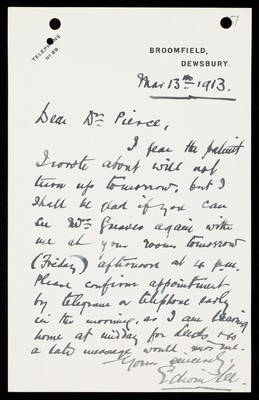 TELEPHONE
No 69.
BROOMFIELD,
DEWSBURY.
Mar 13th 1913.
Dear Dr Pierce,
I fear the patient
I wrote about will not
turn up tomorrow, but I
shall be glad if you can
see Mrs Greaves again with
me at your rooms tomorrow
(Friday) afternoon at 4 p.m.
Please confirm appointment
by telegram or telephone early
in the morning, as I am leaving
home at midday for Leeds & so
a late message would miss me.
Yours sincerely,
Edwin Lee.